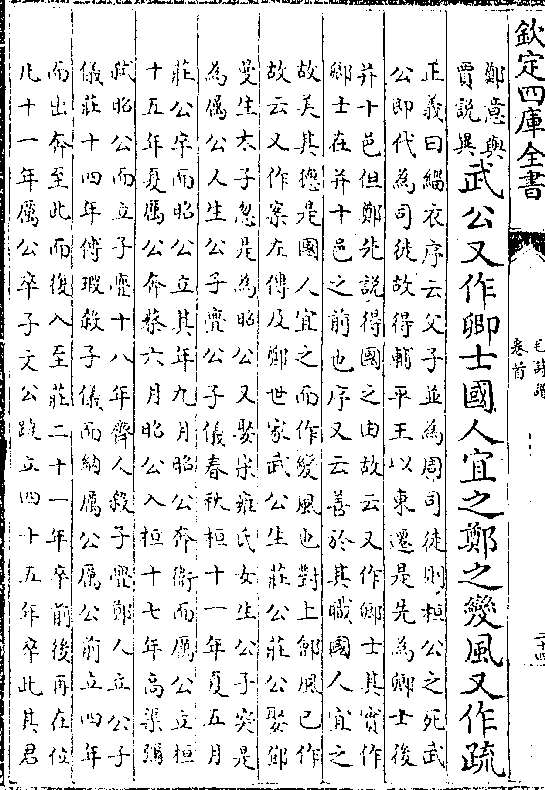 欽定四庫全書
毛詩譜
卷首
二十四
鄭意與
賈說異武公又作卿士國人宜之鄭之變風又作疏
正義曰緇衣序云父子並為周司徒則桓公之死武
公即代為司徒故得輔平王以東遷是先為卿士後
并十邑但鄭先說得國之由故云又作卿士其實作
卿士在并十邑之前也序又云善於其職國人宜之
故美其德是國人宜之而作變風也對上鄶風已作
故云又作案左傳及鄭世家武公生莊公莊公娶鄧
曼生太子忽是為昭公又娶宋雍氏女生公子突是
為厲公人生公子亹公子儀春秋桓十一年夏五月
莊公卒而昭公立其年九月昭公奔衛而厲公立桓
十五年夏厲公奔蔡六月昭公入桓十七年高渠彌
弒昭公而立子亹十八年齊人殺子亹鄭人立公子
儀莊十四年傅瑕殺子儀而納厲公厲公前立四年
而出奔至此而復入至莊二十一年卒前後再在位
凡十一年厲公卒子文公踕立四十五年卒此其君